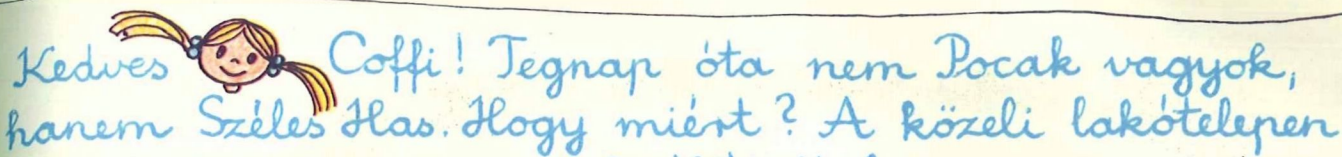 Kedves Coffi! Tegnap óta nem Pocak vagyok,
hanem Széles Has. Hogy miért? A közeli lakótelepen